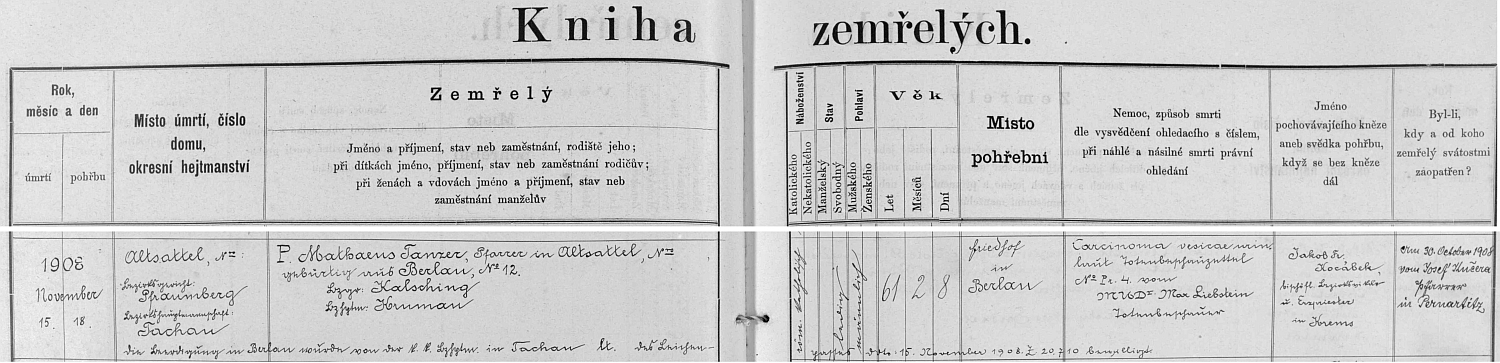 Kniha zemřelých.
Rok,
měsíc a den
úmrtí
pohřbu
Místo úmrtí, číslo
domu,
okresní hejtmanství
Zemřelý
Jméno a příjmení, stav neb zaměstnání, rodiště jeho;
při dítkách jméno, příjmení, stav neb zaměstnání rodičův;
při ženách a vdovách jméno a příjmení, stav neb
zaměstnání manželův
Náboženství
Katolického
Nekatolického
Stav
Manželský
Svobodný
Pohlaví
Mužského
Ženského
Věk
Let
Měsíců
Dní
Místo
pohřební
Nemoc, způsob smrti
dle vysvědčení ohledacího s číslem,
při náhlé a násilné smrti právní
ohledání
Jméno
pochovávajícího kněze
aneb svědka pohřbu,
když se bez kněze
dál
Byl-li,
kdy a od koho
zemřelý svátostmi
zaopatřen?
1908
November
15. 18.
Altsattel, No:
Bezirksgericht:
Pfraumberg
Bezirkshauptmannschaft:
Tachau
P. Mathaeus Tanzer, Pfarrer in Altsattel, No
gebürtig aus Berlau, No 12.
Bzgr: Kalsching
Bzhptm: Krumau
röm. katholisch
ledig
männlich
61 2 8
Friedhof
in
Berlau
Carcinoma vesicae urin.
laut Totenbeschauzettel
No Pr. 4. vom
MUDr Max Liebstein
Totenbeschauer
Jakob Fr.
Kocábek,
bischöfl. Bezirksvikär
u. Erzpriester
in Krems
Am 30. October 1908
vom Josef Kučera
Pfarrer
in Pernartitz
Die Beerdigung in Berlau wurde von der k. k. Bzhptm. in Tachau lt. des Leichen-
passes ddto: 15. November 1908. Z. 20.710 bewilligt.